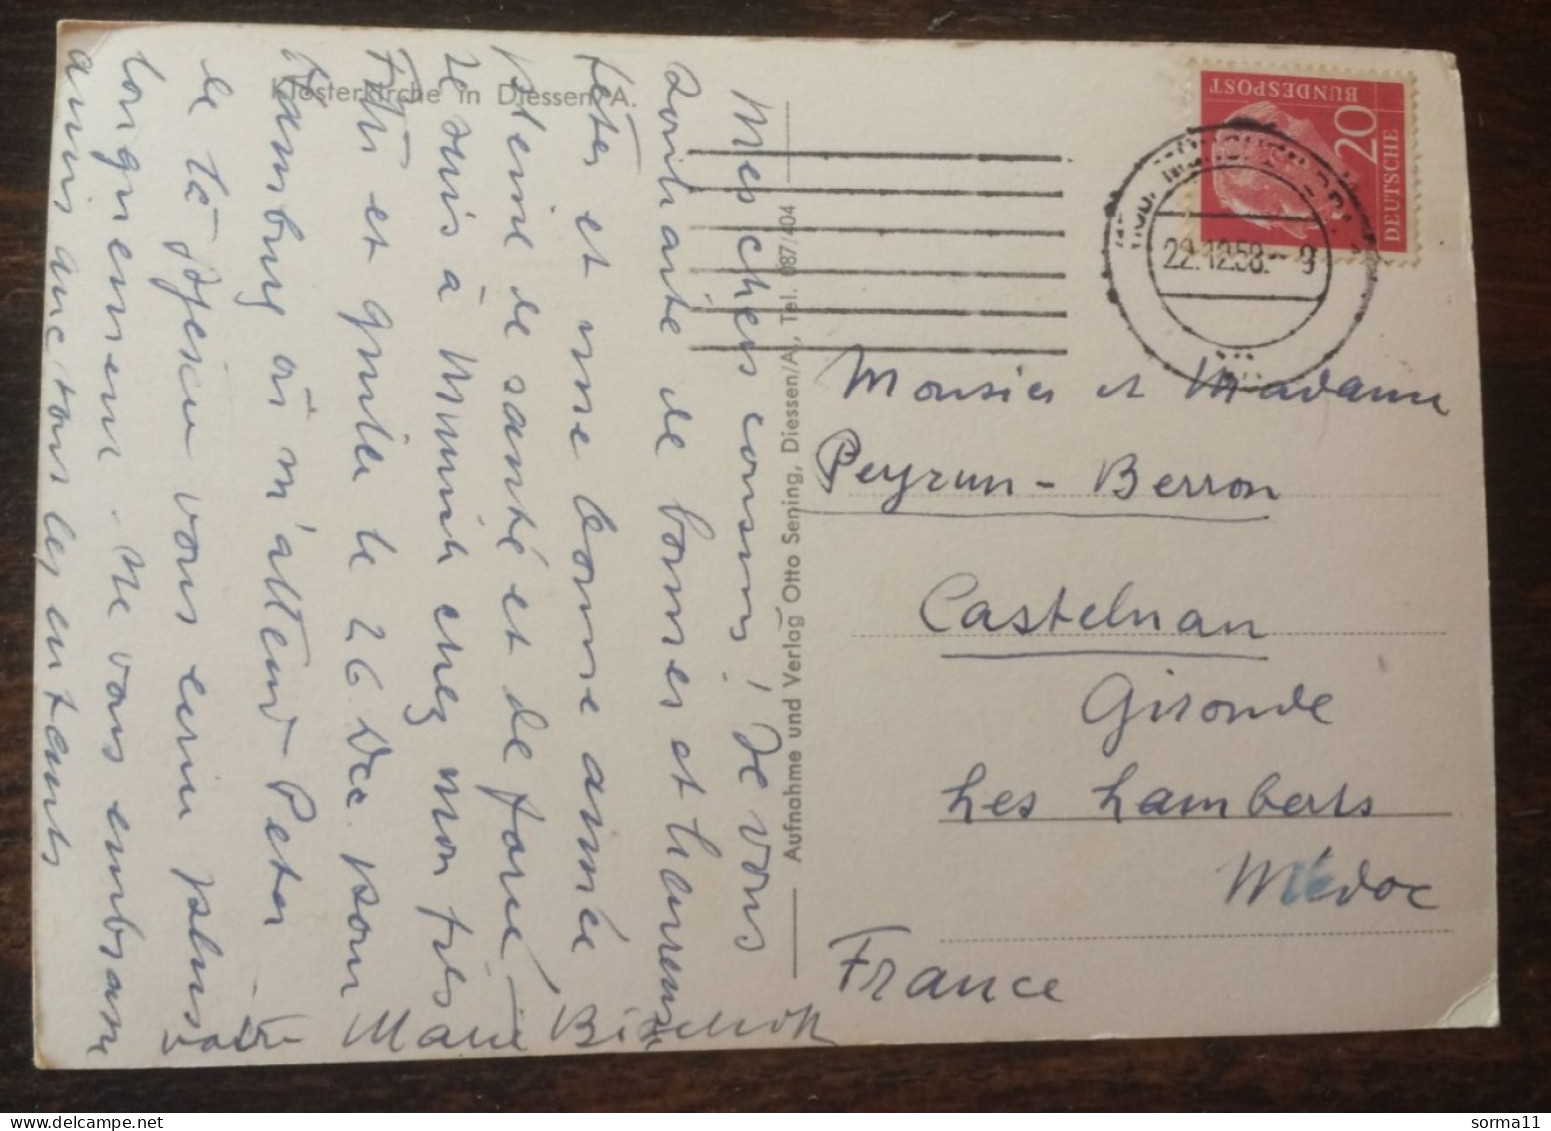 Klosterkirche in Diessen/A.
Mes chers cousins! Je vous
souhaite de bonnes et heureuses
fêtes et une bonne année
pleine de santé et de force
Je suis à Munich chez mon très
Fritz et quitte le 26. Dec. pour
Hamburg où m'attend Peter
De là je vous écrirai plus
longuement. Je vous embrasse
ainsi que tous les enfants
votre Marie Bischoff
Aufnahme und Verlag Otto Sening, Diessen/A., Tel. 087/404
DEUTSCHE
BUNDESPOST
20
22.12.58.-9
Monsieur et Madame
Peyrun-Berron
Castelnau
Gironde
Les Lamberts
Médoc
France
sorma11